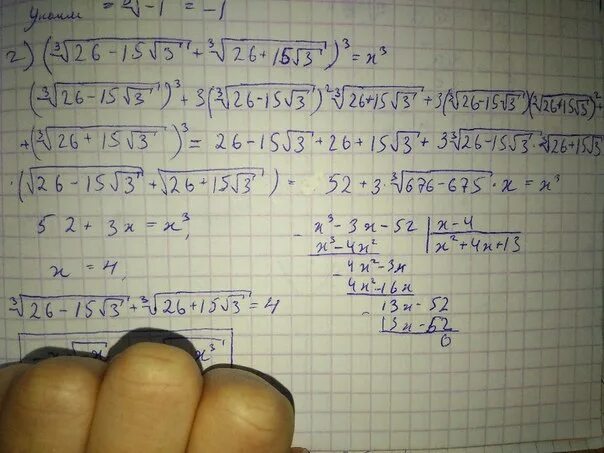 = ∛-1 = -1
2) (∛26-15√3 + ∛26+15√3)³ = x³
(∛26-15√3)³ + 3(∛26-15√3)² ∛26+15√3 + 3(∛26-15√3)(∛26+15√3)² +
+(∛26+15√3)³ = 26-15√3 + 26 + 15√3 + 3∛26-15√3 · ∛26+15√3
·(√26-15√3 + √26+15√3) = 52 + 3·∛676-675 · x = x³
52 + 3x = x³,
x = 4,
∛26-15√3 + ∛26+15√3 = 4
- x³-3x-52 | x-4
x³-4x² x²+4x+13
- 4x²-3x
4x²-16x
- 13x-52
13x-52
0
x³